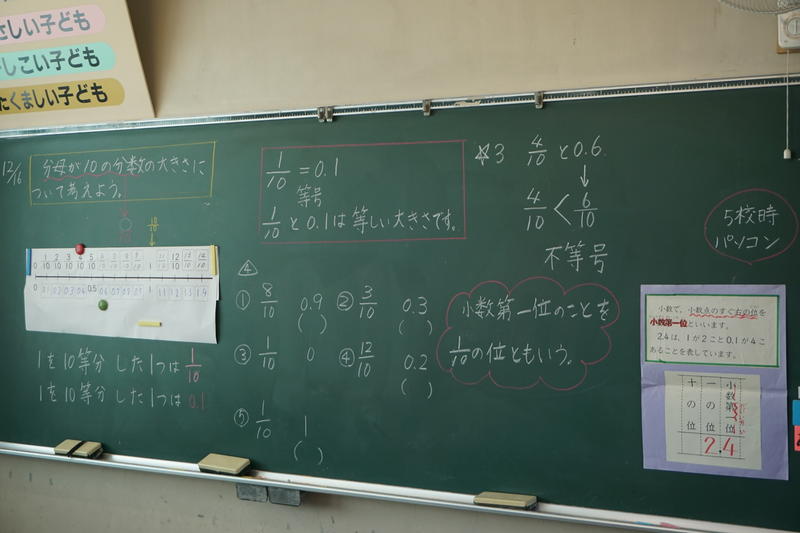 さしい子ども
しこい子ども
たくましい子ども
12/16
分母が10の分数の大きさに
ついて考えよう。
0 1/10 2/10 3/10 4/10 5/10 6/10 7/10 8/10 9/10 1 11/10 12/10 13/10 14/10
0 0.1 0.2 0.3 0.4 0.5 0.6 0.7 0.8 0.9 1 1.1 1.2 1.3 1.4
1を10等分した1つは 1/10
1を10等分した1つは 0.1
1/10 = 0.1
等号
1/10 と0.1は等しい大きさです。
④
① 8/10 0.9 ( )
② 3/10 0.3 ( )
③ 1/10 0
④ 12/10 0.2 ( )
⑤ 1/10 1 ( )
☆3 4/10 と0.6
↓
4/10 < 6/10
不等号
小数第一位のことを
1/10の位ともいう。
5校時
パソコン
小数で、小数点のすぐ右の位を
小数第一位といいます。
2.4は、1が2こと0.1が4こ
あることを表しています。
十の位
一の位
小数第一位
2.4